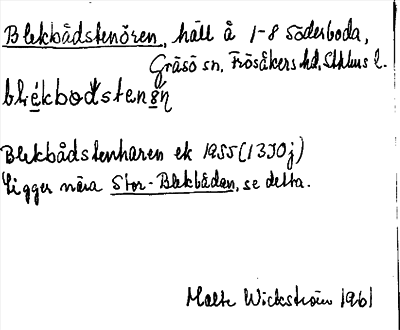 Blekbådstenören, häll å 1-8 Söderboda,
Gräsö sn, Frösåkers hd, Sthlms l.
Blekbådstenharen ek 1955 (13I0j)
Ligger nära Stor-Blekbådan, se detta.
Malte Wickström 1961